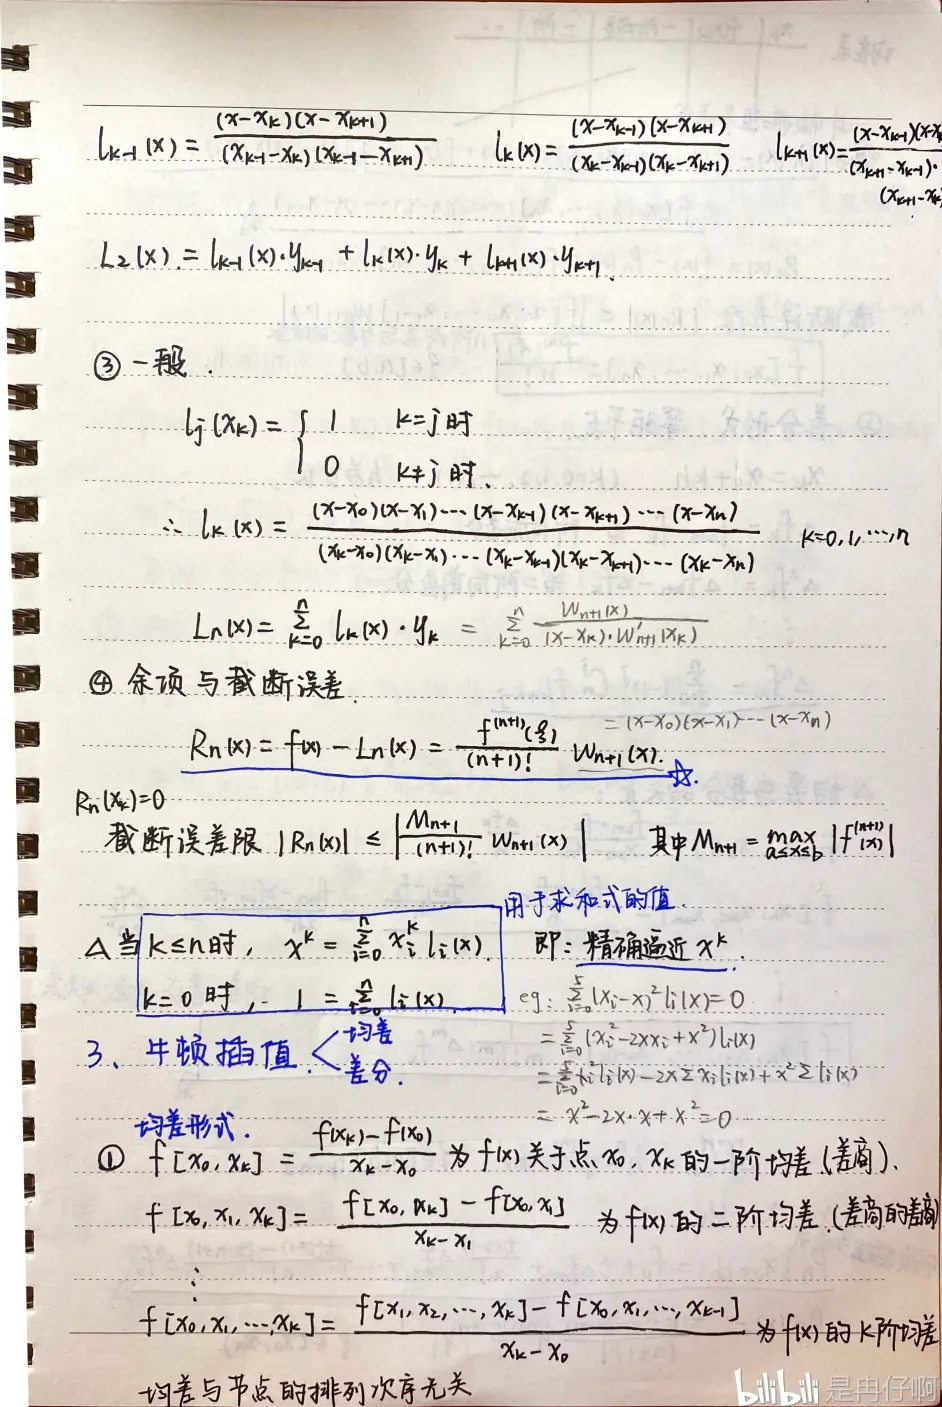 l_{k-1}(x) = \frac{(x-x_k)(x-x_{k+1})}{(x_{k-1}-x_k)(x_{k-1}-x_{k+1})}  l_k(x) = \frac{(x-x_{k-1})(x-x_{k+1})}{(x_k-x_{k-1})(x_k-x_{k+1})}  l_{k+1}(x) = \frac{(x-x_{k-1})(x-x}{(x_{k+1}-x_{k-1})\cdot(x_{k+1}-x_k}
L_2(x) = l_{k-1}(x)·y_{k-1} + l_k(x)·y_k + l_{k+1}(x)·y_{k+1}.
③ 一般.
l_j(x_k) = { 1  k=j时
0  k≠j时.
∴ l_k(x) = \frac{(x-x_0)(x-x_1)⋯(x-x_{k-1})(x-x_{k+1})⋯(x-x_n)}{(x_k-x_0)(x_k-x_1)⋯(x_k-x_{k-1})(x_k-x_{k+1})⋯(x_k-x_n)}  k=0,1,⋯,n
L_n(x) = \sum_{k=0}^{n} l_k(x)·y_k = \sum_{k=0}^{n} \frac{W_{n+1}(x)}{(x-x_k)·W'_{n+1}(x_k)}
④ 余项与截断误差.
= (x-x_0)(x-x_1)⋯(x-x_n)
R_n(x) = f(x) - L_n(x) = \frac{f^{(n+1)}(ξ)}{(n+1)!} W_{n+1}(x). ☆.
R_n(x_k)=0
截断误差限 |R_n(x)| ≤ |\frac{M_{n+1}}{(n+1)!} W_{n+1}(x)|  其中 M_{n+1} = \max_{a≤x≤b} |f^{(n+1)}(x)|
用于求和式的值.
△当 k≤n时, x^k = \sum_{i=0}^{n} x_i^k l_i(x).  即: 精确逼近 x^k.
k=0时, 1 = \sum_{i=0}^{n} l_i(x).  eg: \sum_{i=0}^{5} (x_i-x)^2 l_i(x) = 0
= \sum_{i=0}^{5} (x_i^2-2xx_i+x^2) l_i(x)
3、牛顿插值. < 均差
差分.
= \sum_{i=0}^{5} x_i^2 l_i(x) - 2xΣx_i l_i(x) + x^2 Σ l_i(x)
= x^2-2x·x+x^2=0
均差形式.
① f[x_0, x_k] = \frac{f(x_k)-f(x_0)}{x_k-x_0} 为f(x)关于点x_0, x_k的一阶均差(差商).
f[x_0, x_1, x_k] = \frac{f[x_0, x_k] - f[x_0, x_1]}{x_k-x_1} 为f(x)的二阶均差.(差商的差商)
⋮
f[x_0, x_1, ⋯, x_k] = \frac{f[x_1, x_2, ⋯, x_k] - f[x_0, x_1, ⋯, x_{k-1}]}{x_k-x_0} 为f(x)的k阶均差
均差与节点的排列次序无关
bilibili 是冉仔啊